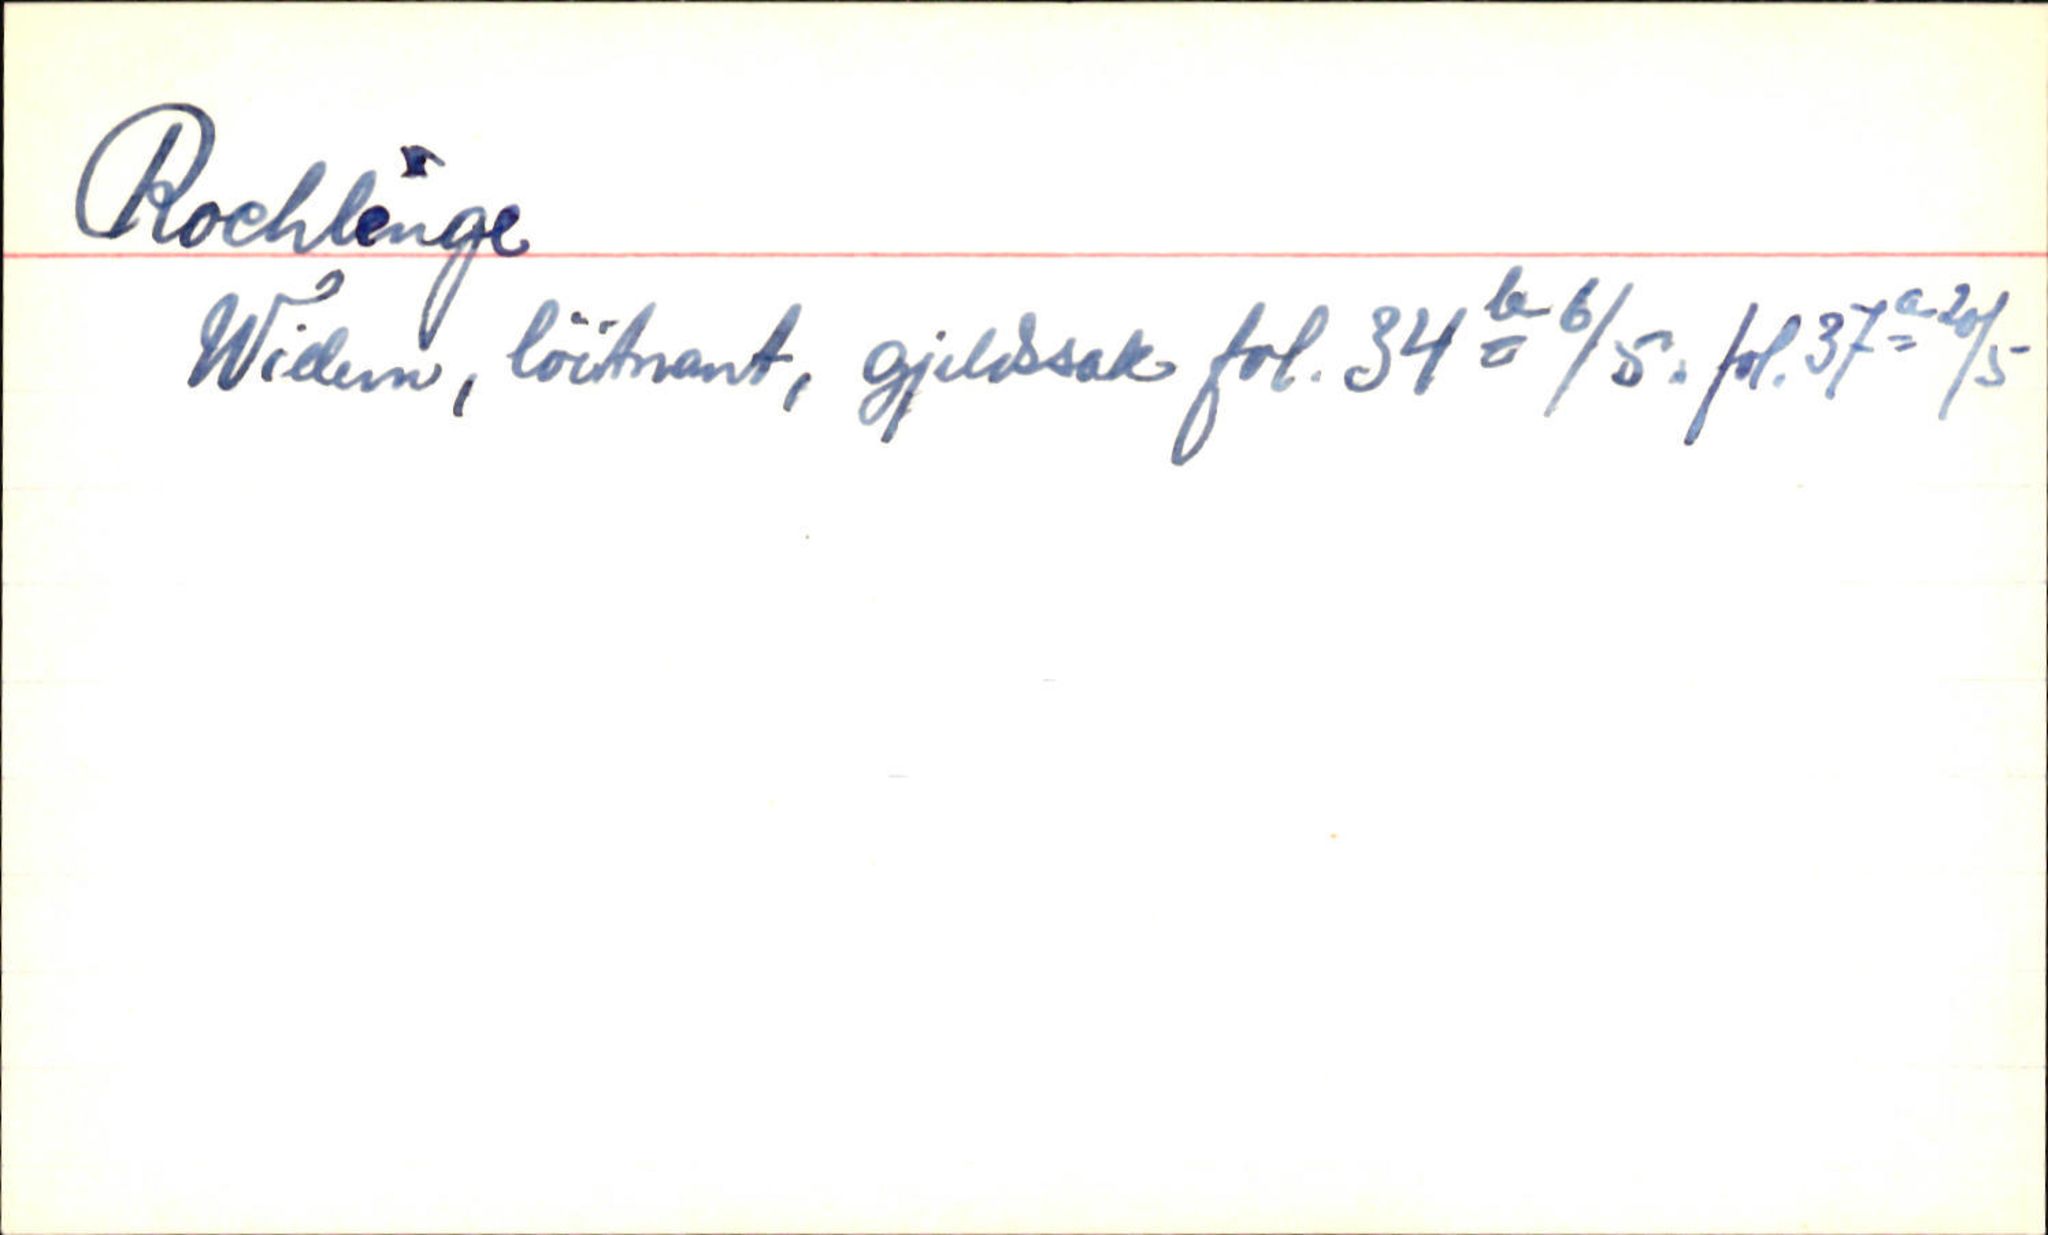 Rochlenge
Widem, löitnant, gjeldssak fol. 34 b 6/5. fol. 37 a 20/5